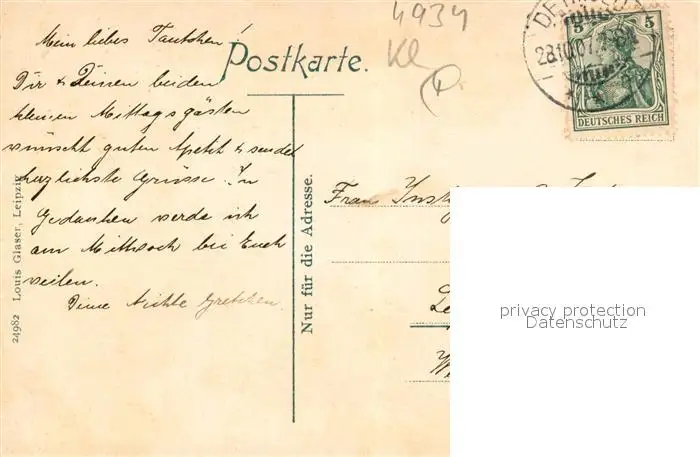 4934
Kl
Mein liebes Tantchen!
Postkarte.
Dir & Deinen beiden
kleinen Mittagsgästen
wünscht guten Apetit & sendet
herzlichste Grüsse. In
Gedanken werde ich
am Mittwoch bei Euch
weilen.
Deine Nichte Gretchen.
DETMOLD
28.10.07
5 5
DEUTSCHES REICH
Frau
Nur für die Adresse.
24982 Louis Glaser, Leipzig
privacy protection
Datenschutz